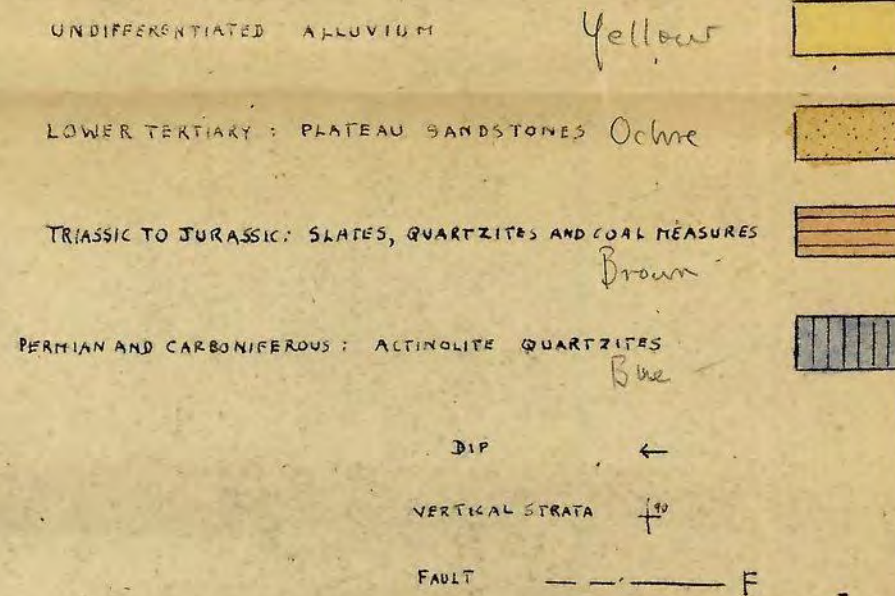 UNDIFFERENTIATED ALLUVIUM Yellow
LOWER TERTIARY : PLATEAU SANDSTONES Ochre
TRIASSIC TO JURASSIC: SLATES, QUARTZITES AND COAL MEASURES
Brown
PERMIAN AND CARBONIFEROUS : ACTINOLITE QUARTZITES
Blue
DIP
VERTICAL STRATA 90
FAULT F